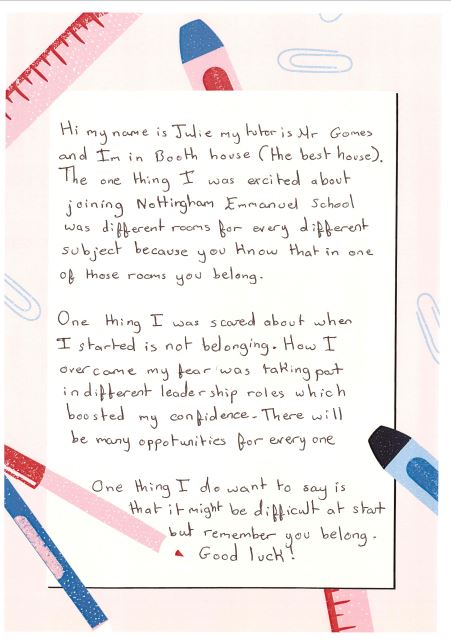 Hi my name is Julie my tutor is Mr Gomes
and Im in Booth house (the best house).
The one thing I was excited about
joining Nottingham Emmanuel School
was different rooms for every different
subject because you know that in one
of those rooms you belong.
One thing I was scared about when
I started is not belonging. How I
overcame my fear was taking part
in different leadership roles which
boosted my confidence. There will
be many oppotunities for every one
One thing I do want to say is
that it might be difficult at start
but remember you belong.
Good luck!